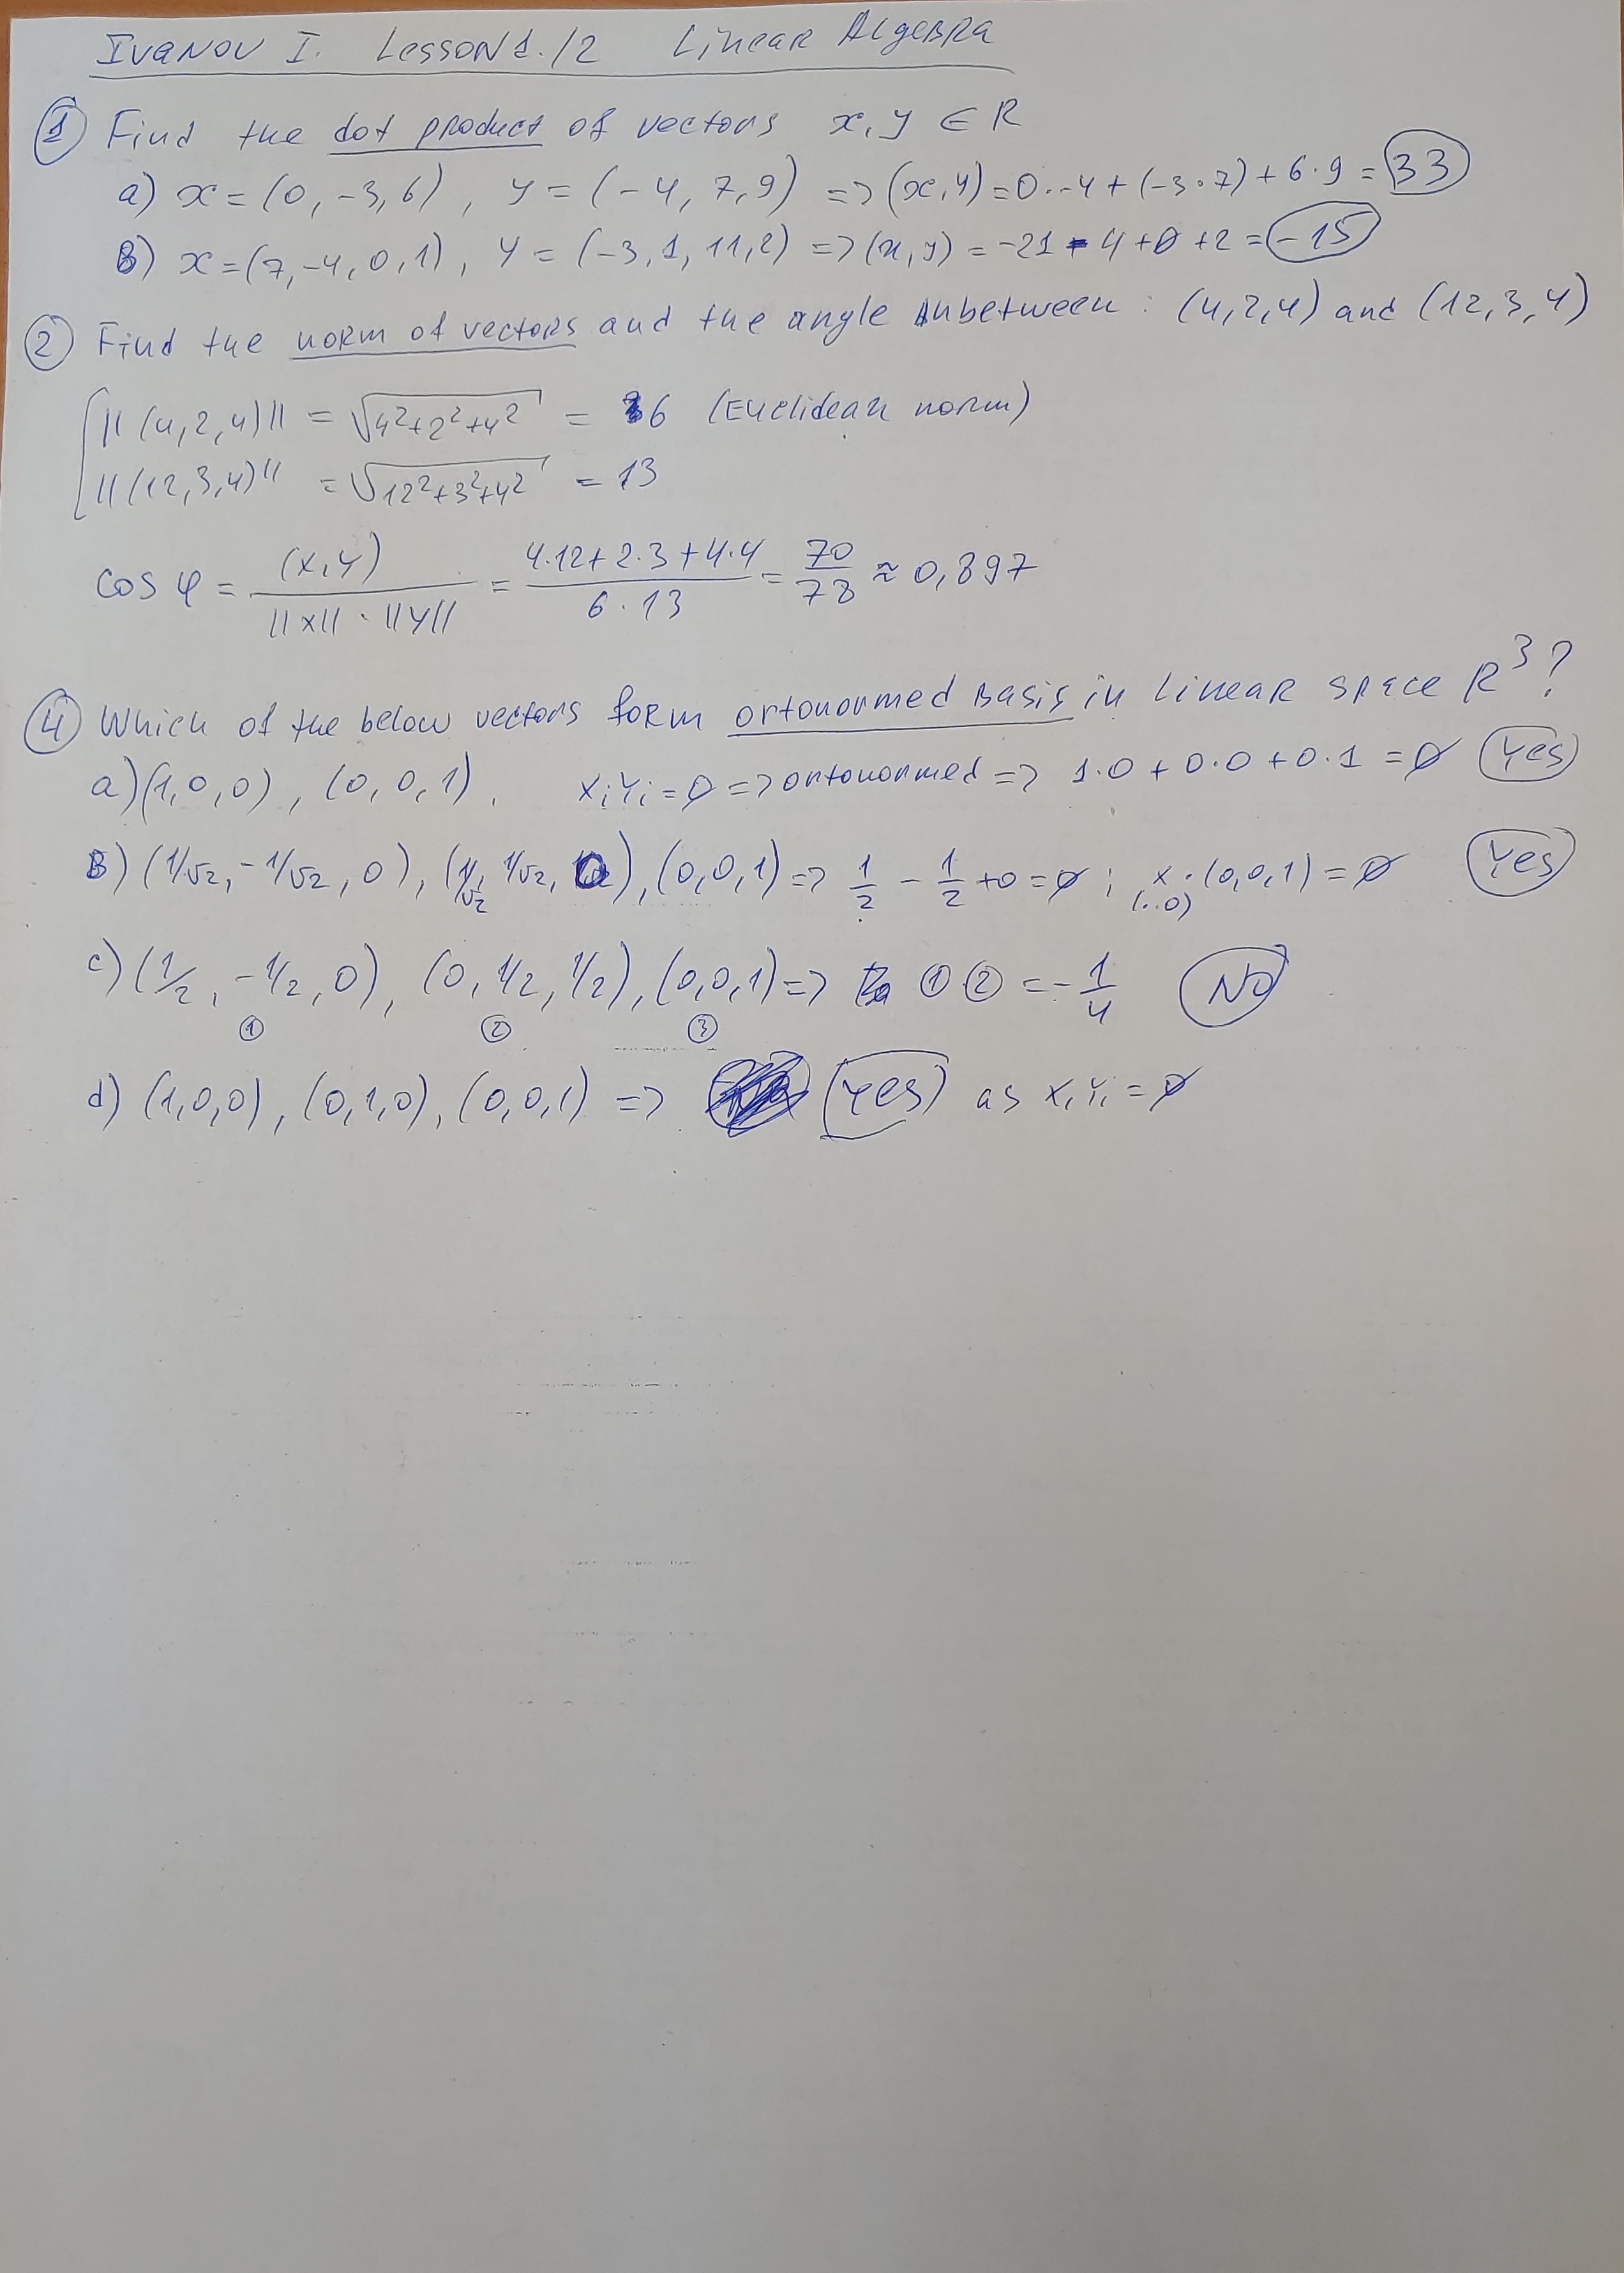 Ivanov I. Lesson 1./2 Linear Algebra
① Find the dot product of vectors x, y ∈ R
a) x = (0, -3, 6), y = (-4, 7, 9) => (x, y) = 0·-4 + (-3·7) + 6·9 = 33
B) x = (7, -4, 0, 1), y = (-3, 1, 11, 2) => (x, y) = -21 - 4 + 0 + 2 = -15
② Find the norm of vectors and the angle inbetween: (4, 2, 4) and (12, 3, 4)
||(4, 2, 4)|| = √4²+2²+4² = 6 (Euclidean norm)
||(12, 3, 4)|| = √12²+3²+4² = 13
cos φ = (x, y) / ||x|| · ||y|| = 4·12 + 2·3 + 4·4 / 6·13 = 70/78 ≈ 0,897
④ Which of the below vectors form ortonormed Basis in Linear space R³?
a) (1, 0, 0), (0, 0, 1). xᵢyᵢ = 0 => ortonormed => 1·0 + 0·0 + 0·1 = 0 Yes
B) (1/√2, -1/√2, 0), (1/√2, 1/√2, 0), (0, 0, 1) => 1/2 - 1/2 + 0 = 0; x·(0, 0, 1) = 0 Yes
(..0)
c) (1/2, -1/2, 0), (0, 1/2, 1/2), (0, 0, 1) => ① ② = -1/4 No
① ② ③
d) (1, 0, 0), (0, 1, 0), (0, 0, 1) => Yes as xᵢyᵢ = 0